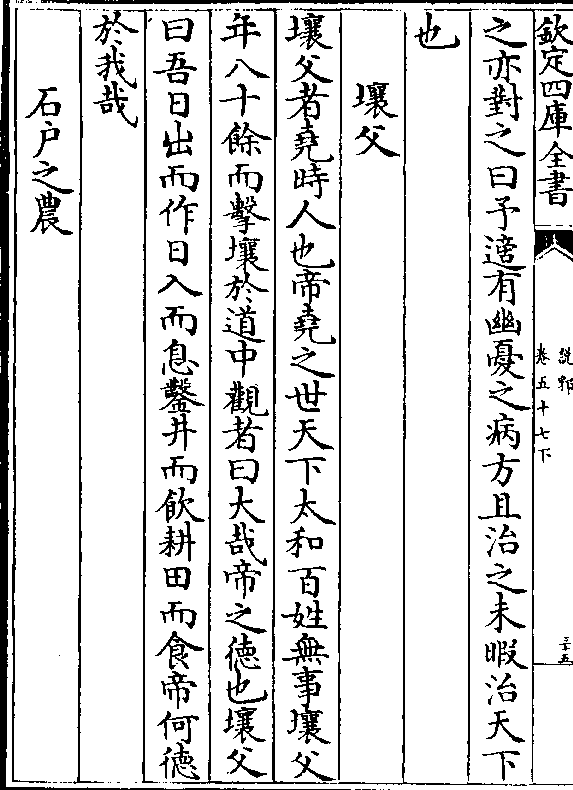 欽定四庫全書
説郛
卷五十七下
三十五
之亦對之曰予適有幽憂之病方且治之未暇治天下
也
壤父
壤父者堯時人也帝堯之世天下太和百姓無事壤父
年八十餘而擊壤於道中觀者曰大哉帝之德也壤父
曰吾日出而作日入而息鑿井而飲耕田而食帝何德
於我哉
石户之農